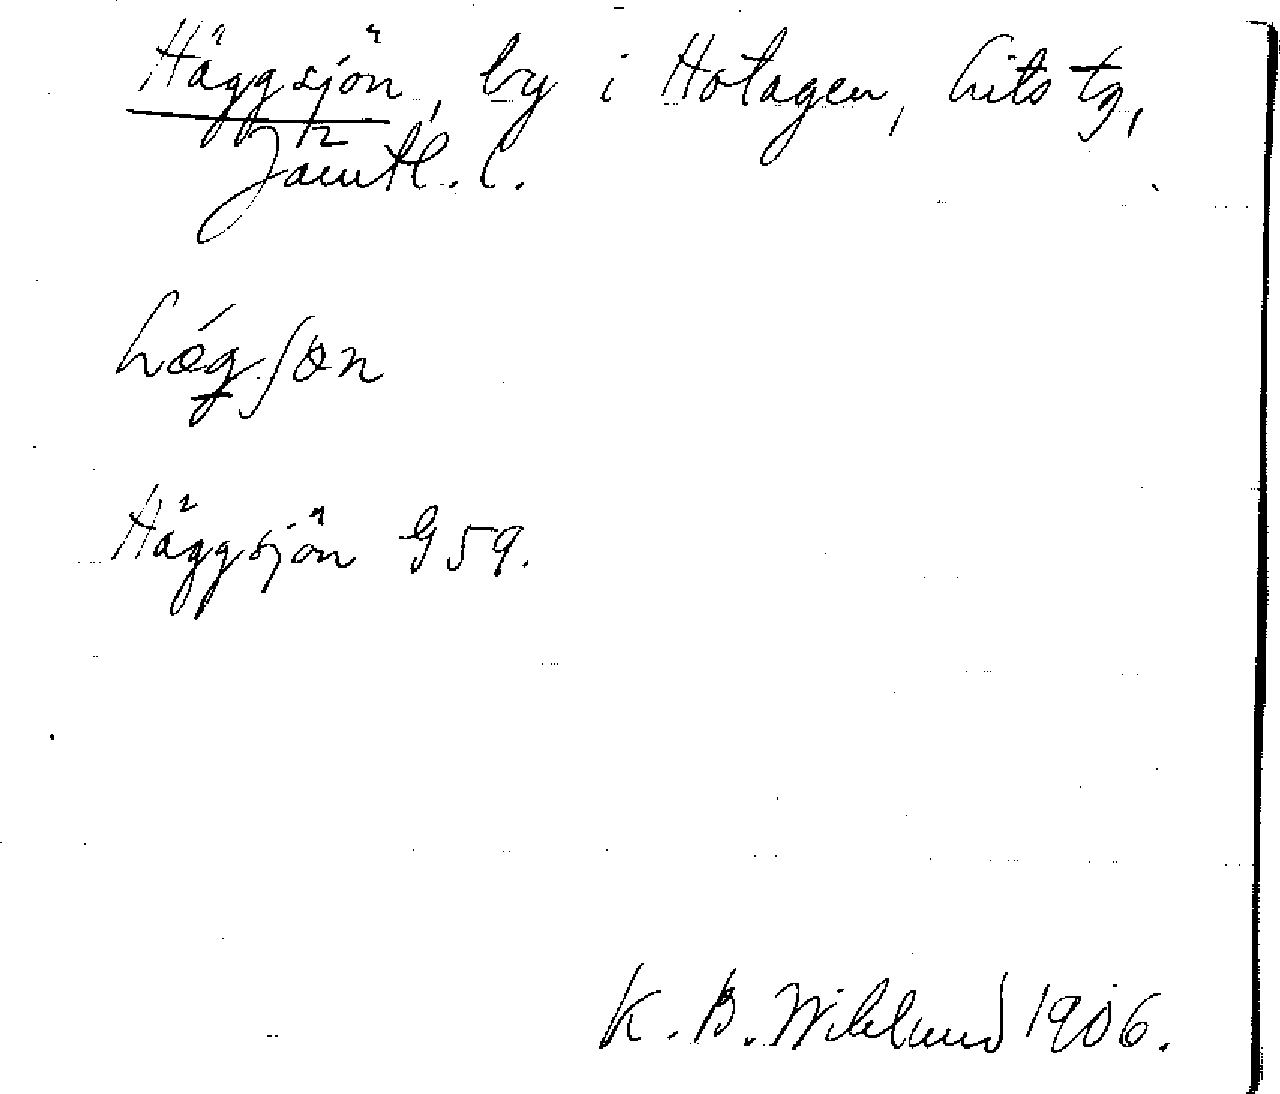 Häggsjön, by i Hotagen, Lits tg,
Jämtl. l.
hǽgʃøn
Häggsjön G 59.
K. B. Wiklund 1906.